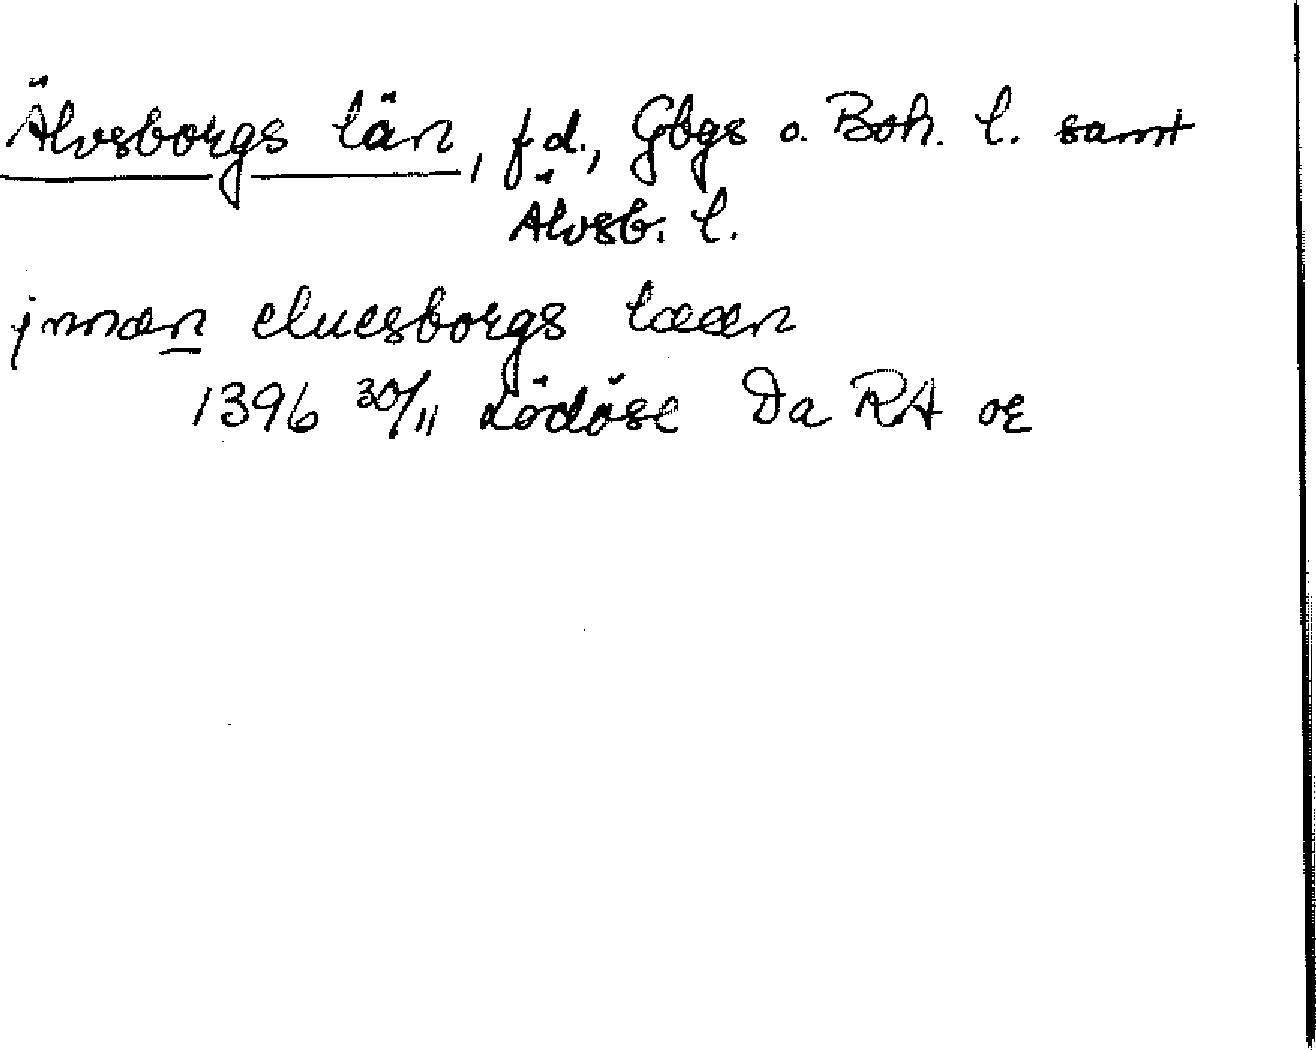 Älvsborgs län, f.d., Gbgs o. Boh. l. samt
Älvsb. l.
jnnæn eluesborgs lææn
1396 30/11 Lödöse Da RA or